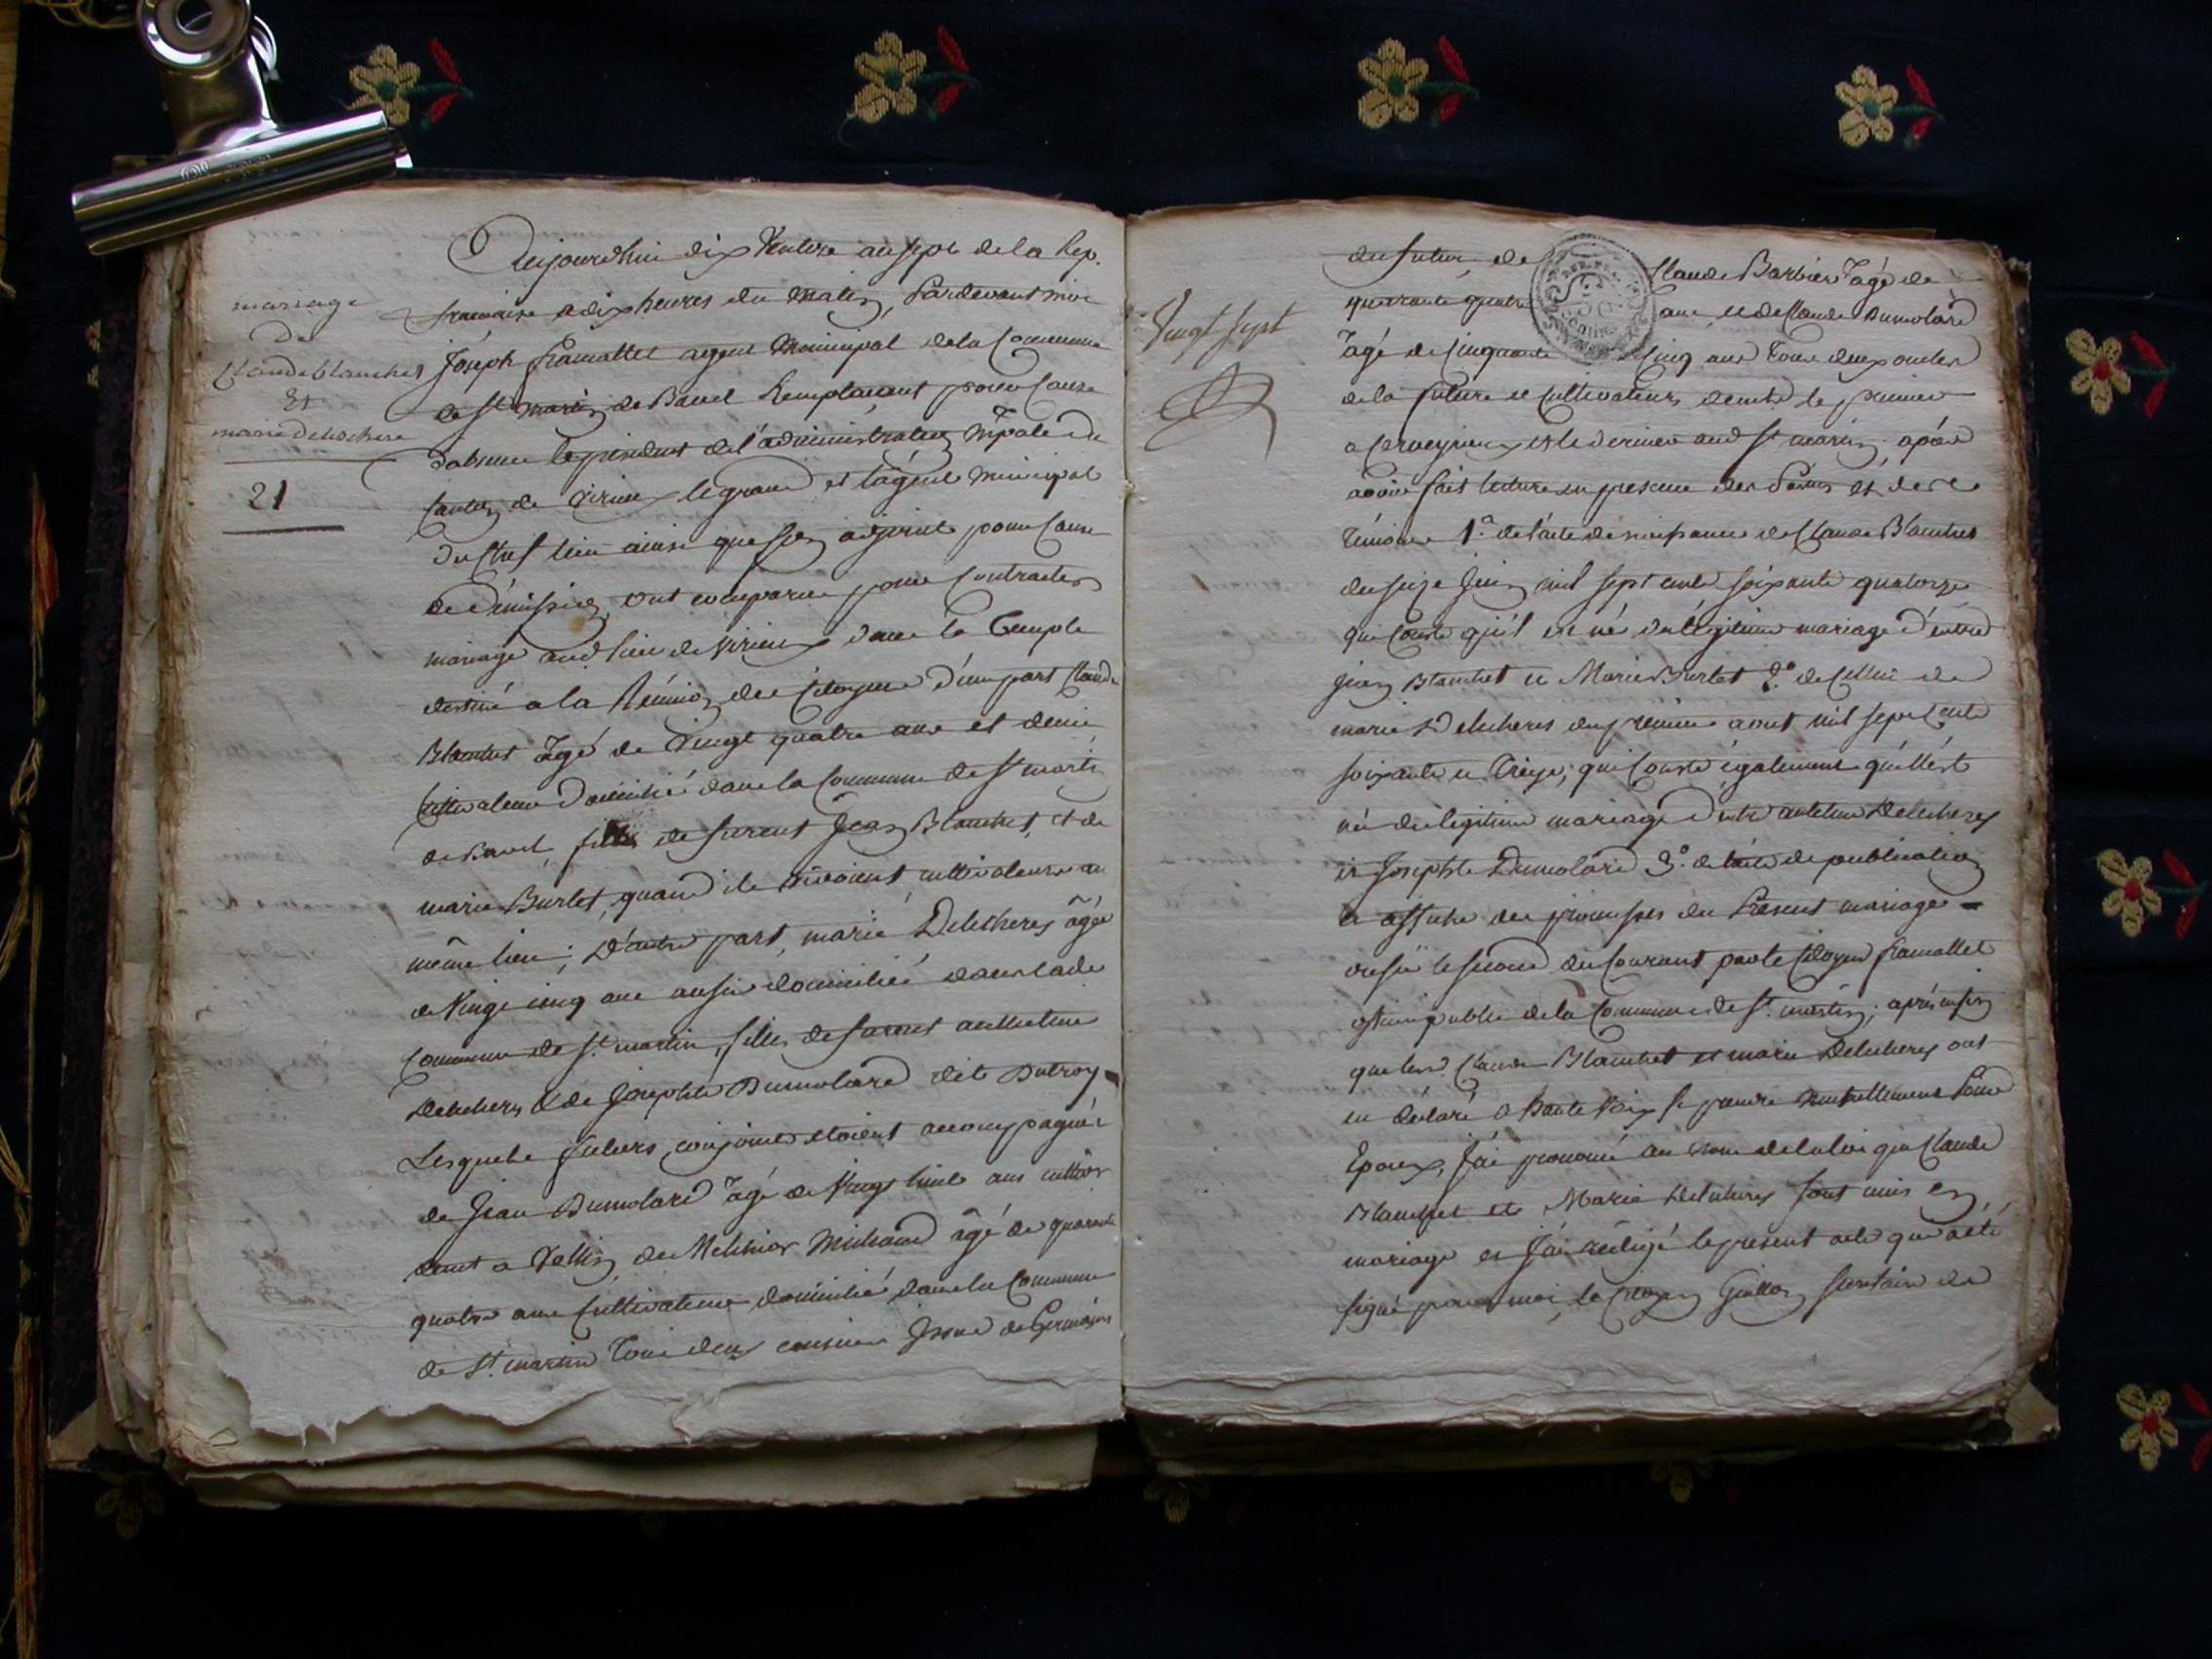 mariage
De
Claude blanchet
Et
marie delechere
21
Aujourdhui dix Ventose an sept de la Rep.
francaise a dix heures du matin, Pardevant moi
Joseph framallet agent Municipal de la Commune
de St martin de Bavel Remplacant pour Cause
dabsence le president de l'administration mpale du
Canton de Virieu le grand et l'agent Municipal
du Chef lieu ainsi que son adjoint pour Cause
de demission, ont comparu pour Contracter
mariage audt lieu de Virieu dans le Temple
destiné a la Reunion des Citoyens d'une part Claude
Blanchet âgé de Vingt quatre ans et demi
Cultivateur domicilié dans la Commune de St martin
de Bavel, fils de furent Jean Blanchet, et de
marie Burlet, quand ils vivoient cultivateurs au
même lieu; D'autre part, marie Delecheres âgée
de Vingt cinq ans aussi domiciliée dans ladte
Commune de St martin, fille de furent anthelme
Delecheres & de Josephte Dumolard dit Dutroy
Lesquels futurs conjoints etoient accompagnés
de Jean Dumolard âgé de Vingt huit ans cultivr
demt a Vollien de Melchior Michaud âgé de quarante
quatre ans Cultivateur domicilié dans la Commune
de St martin Tous deux cousins Issus de Germains
Vingt sept
du futur, de Claude Barbier âgé de
quarante quatre ans, et de Claude Dumolard
âgé de Cinquante Cinq ans Tous deux oncles
de la future et Cultivateurs demts le premier
a Cerveyrieu et le dernier audt St martin; après
avoir fait lecture en presence des Parties et des
Témoins 1o de l'acte de naissance de Claude Blanchet
du seize Juin mil sept cents soixante quatorze
qui Conste qu'il est né du légitime mariage d'entre
Jean Blanchet et Marie Burlet 2o de Celluie de
marie Delecheres du premier aout mil sept Cents
soixante et Treize, qui Conste également qu'elle est
née du légitime mariage d'entre antelme Delecheres
et Josephte Dumolard 3o de l'acte de publication
et affiche des promesses du Present mariage
du Courant par le Citoyen framallet
officier public de la Commune de St martin; après aussi
que lesd. Claude Blanchet et marie Delecheres ont
eu déclaré a haute Voix se prendre mutuellement Pour
Epoux, J'ai prononcé au nom de la loi que Claude
Blanchet et Marie Delecheres sont unis en
mariage et J'ai redigé le present acte qui a été
signé par moi, le Citoyen Guillon secretaire de